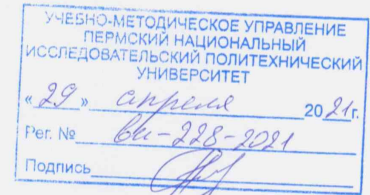 УЧЕБНО-МЕТОДИЧЕСКОЕ УПРАВЛЕНИЕ
ПЕРМСКИЙ НАЦИОНАЛЬНЫЙ
ИССЛЕДОВАТЕЛЬСКИЙ ПОЛИТЕХНИЧЕСКИЙ
УНИВЕРСИТЕТ
«29» апреля 2021г.
Рег. № вн-228-2021
Подпись